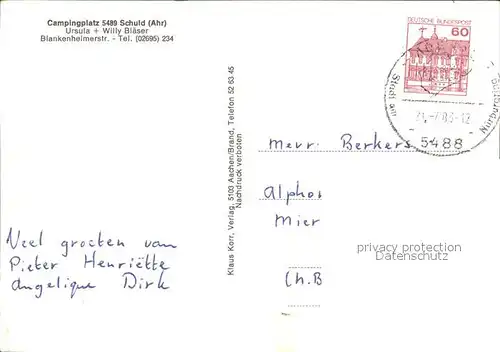 Campingplatz 5489 Schuld (Ahr)
Ursula + Willy Bläser
Blankenheimerstr. - Tel. (02695) 234
DEUTSCHE BUNDESPOST
60
Stadt am
Nürburgring
5488
Klaus Kerr, Verlag, 5103 Aachen/Brand, Telefon 52 63 45
Nachdruck verboten
Mevr. Berkers
Alphos
Mier
Ch.B
privacy protection
Datenschutz
Veel groeten van
Pieter Henriëtte
Angelique Dirk